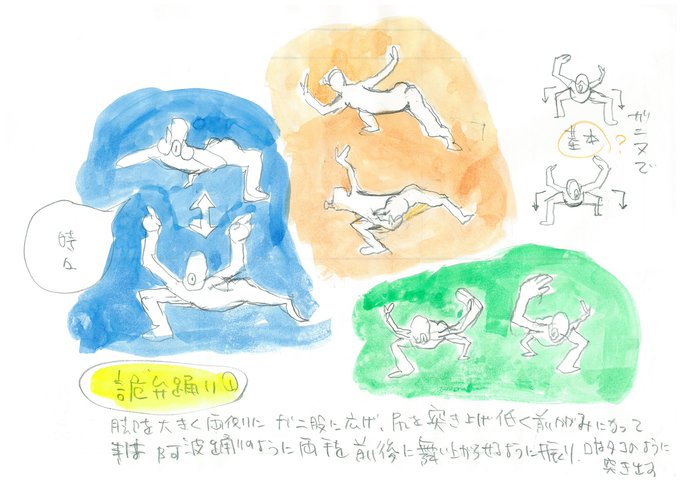 ガニ又で
基本?
時々
詭弁踊り①
脚を大きく両側にガニ股に広げ、尻を突き上げ低く前かがみになって
手は阿波踊りのように両手を前後に舞い上がらせるように振り、口はタコのように
突き出す